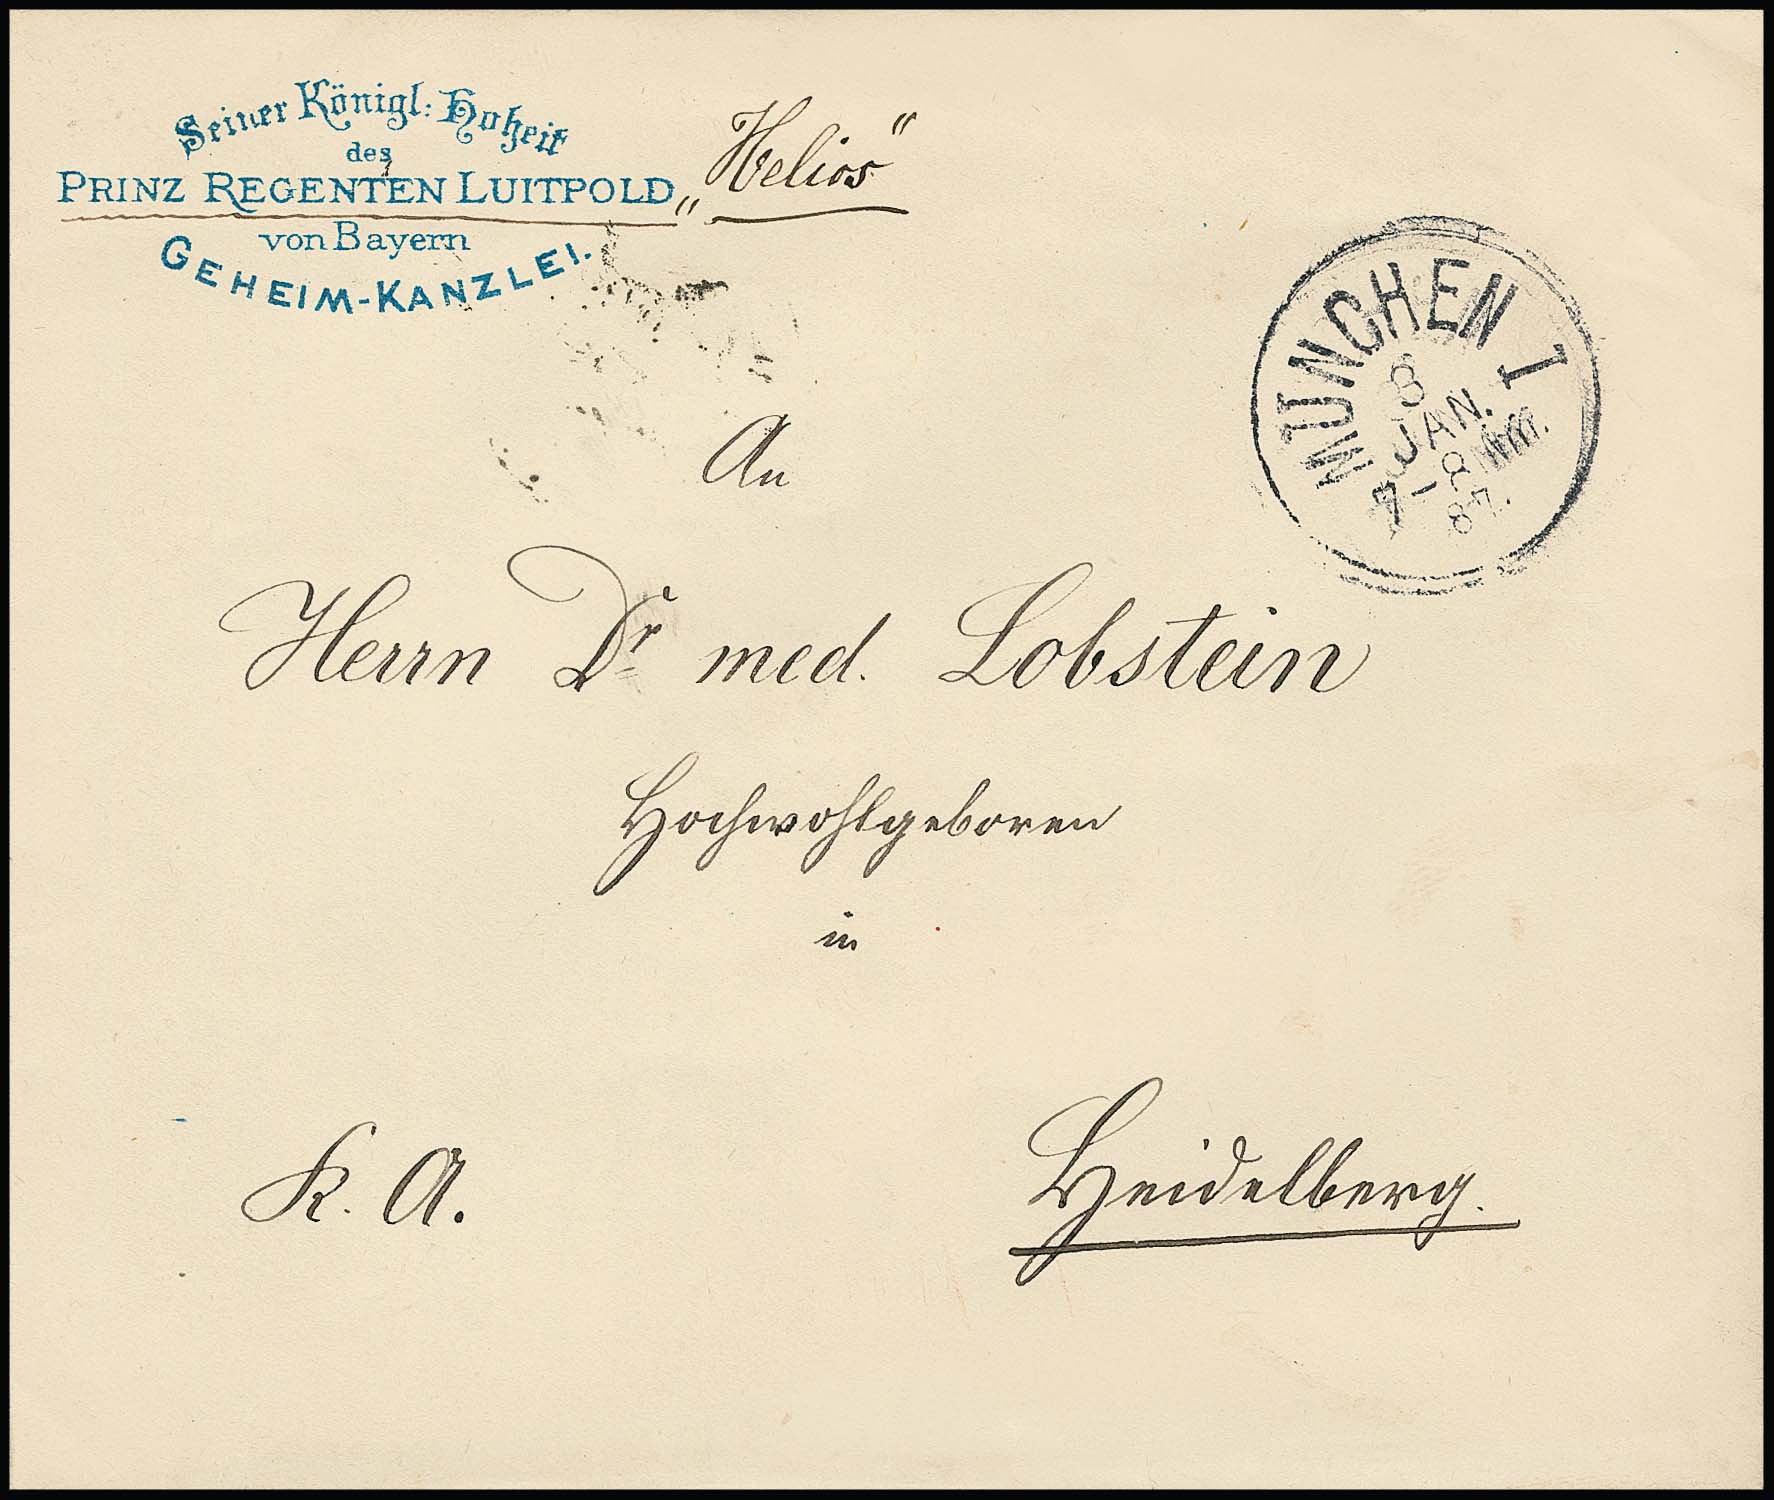 Seiner Königl: Hoheit
des
PRINZ REGENTEN LUITPOLD
von Bayern
GEHEIM-KANZLEI.
„Helios“
MÜNCHEN I
8
JAN.
7-8 NM.
87.
An
Herrn Dr med. Lobstein
Hochwohlgeboren
in
Heidelberg.
K. A.